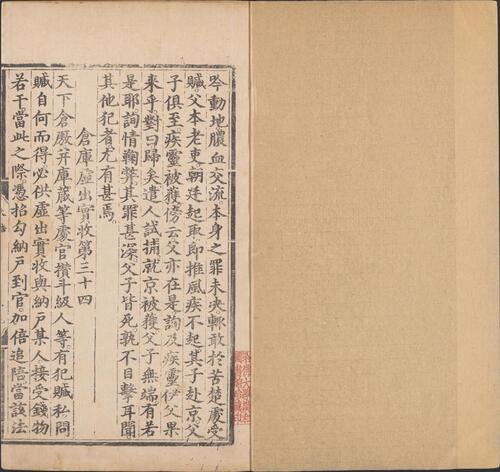 呤動地膿血交流本身之罪未決輒敢於苦楚處受
贓父本老吏朝廷起取即推風疾不起其子赴京父
子俱至疾靈被獲傍云父亦在是詢及疾靈伊父果
來乎對曰歸矣遣人試捕就京被獲父子無端有若
是耶詢情鞠弊其罪甚深父子皆死孰不目擊耳聞
其他犯者尤有甚焉
倉庫虛出實收第三十四
天下倉廒并庫藏等處官攢斗級人等有犯贓私問
贓自何而得必供虛出實收與納戶某人接受錢物
若干當此之際憑招勾納戶到官加倍追陪當該法